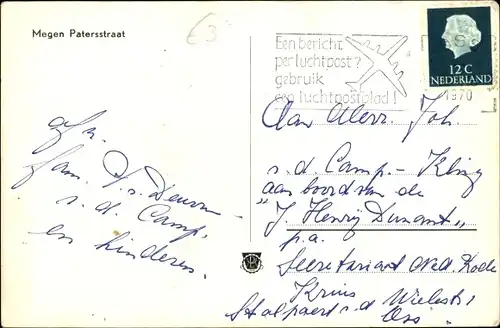 Megen Patersstraat
€3
Een bericht
per luchtpost?
gebruik
een luchtpostblad!
12 C
NEDERLAND
1970
Aan de Heer Joh.
v. d. Camp - 
aan boord van de
"J. Henry Dunant"
p.a.
Secretariaat Ned. Rode
Kruis
v. d.
Oss
afz.
fam.
v. d. Camp.
en kinderen.